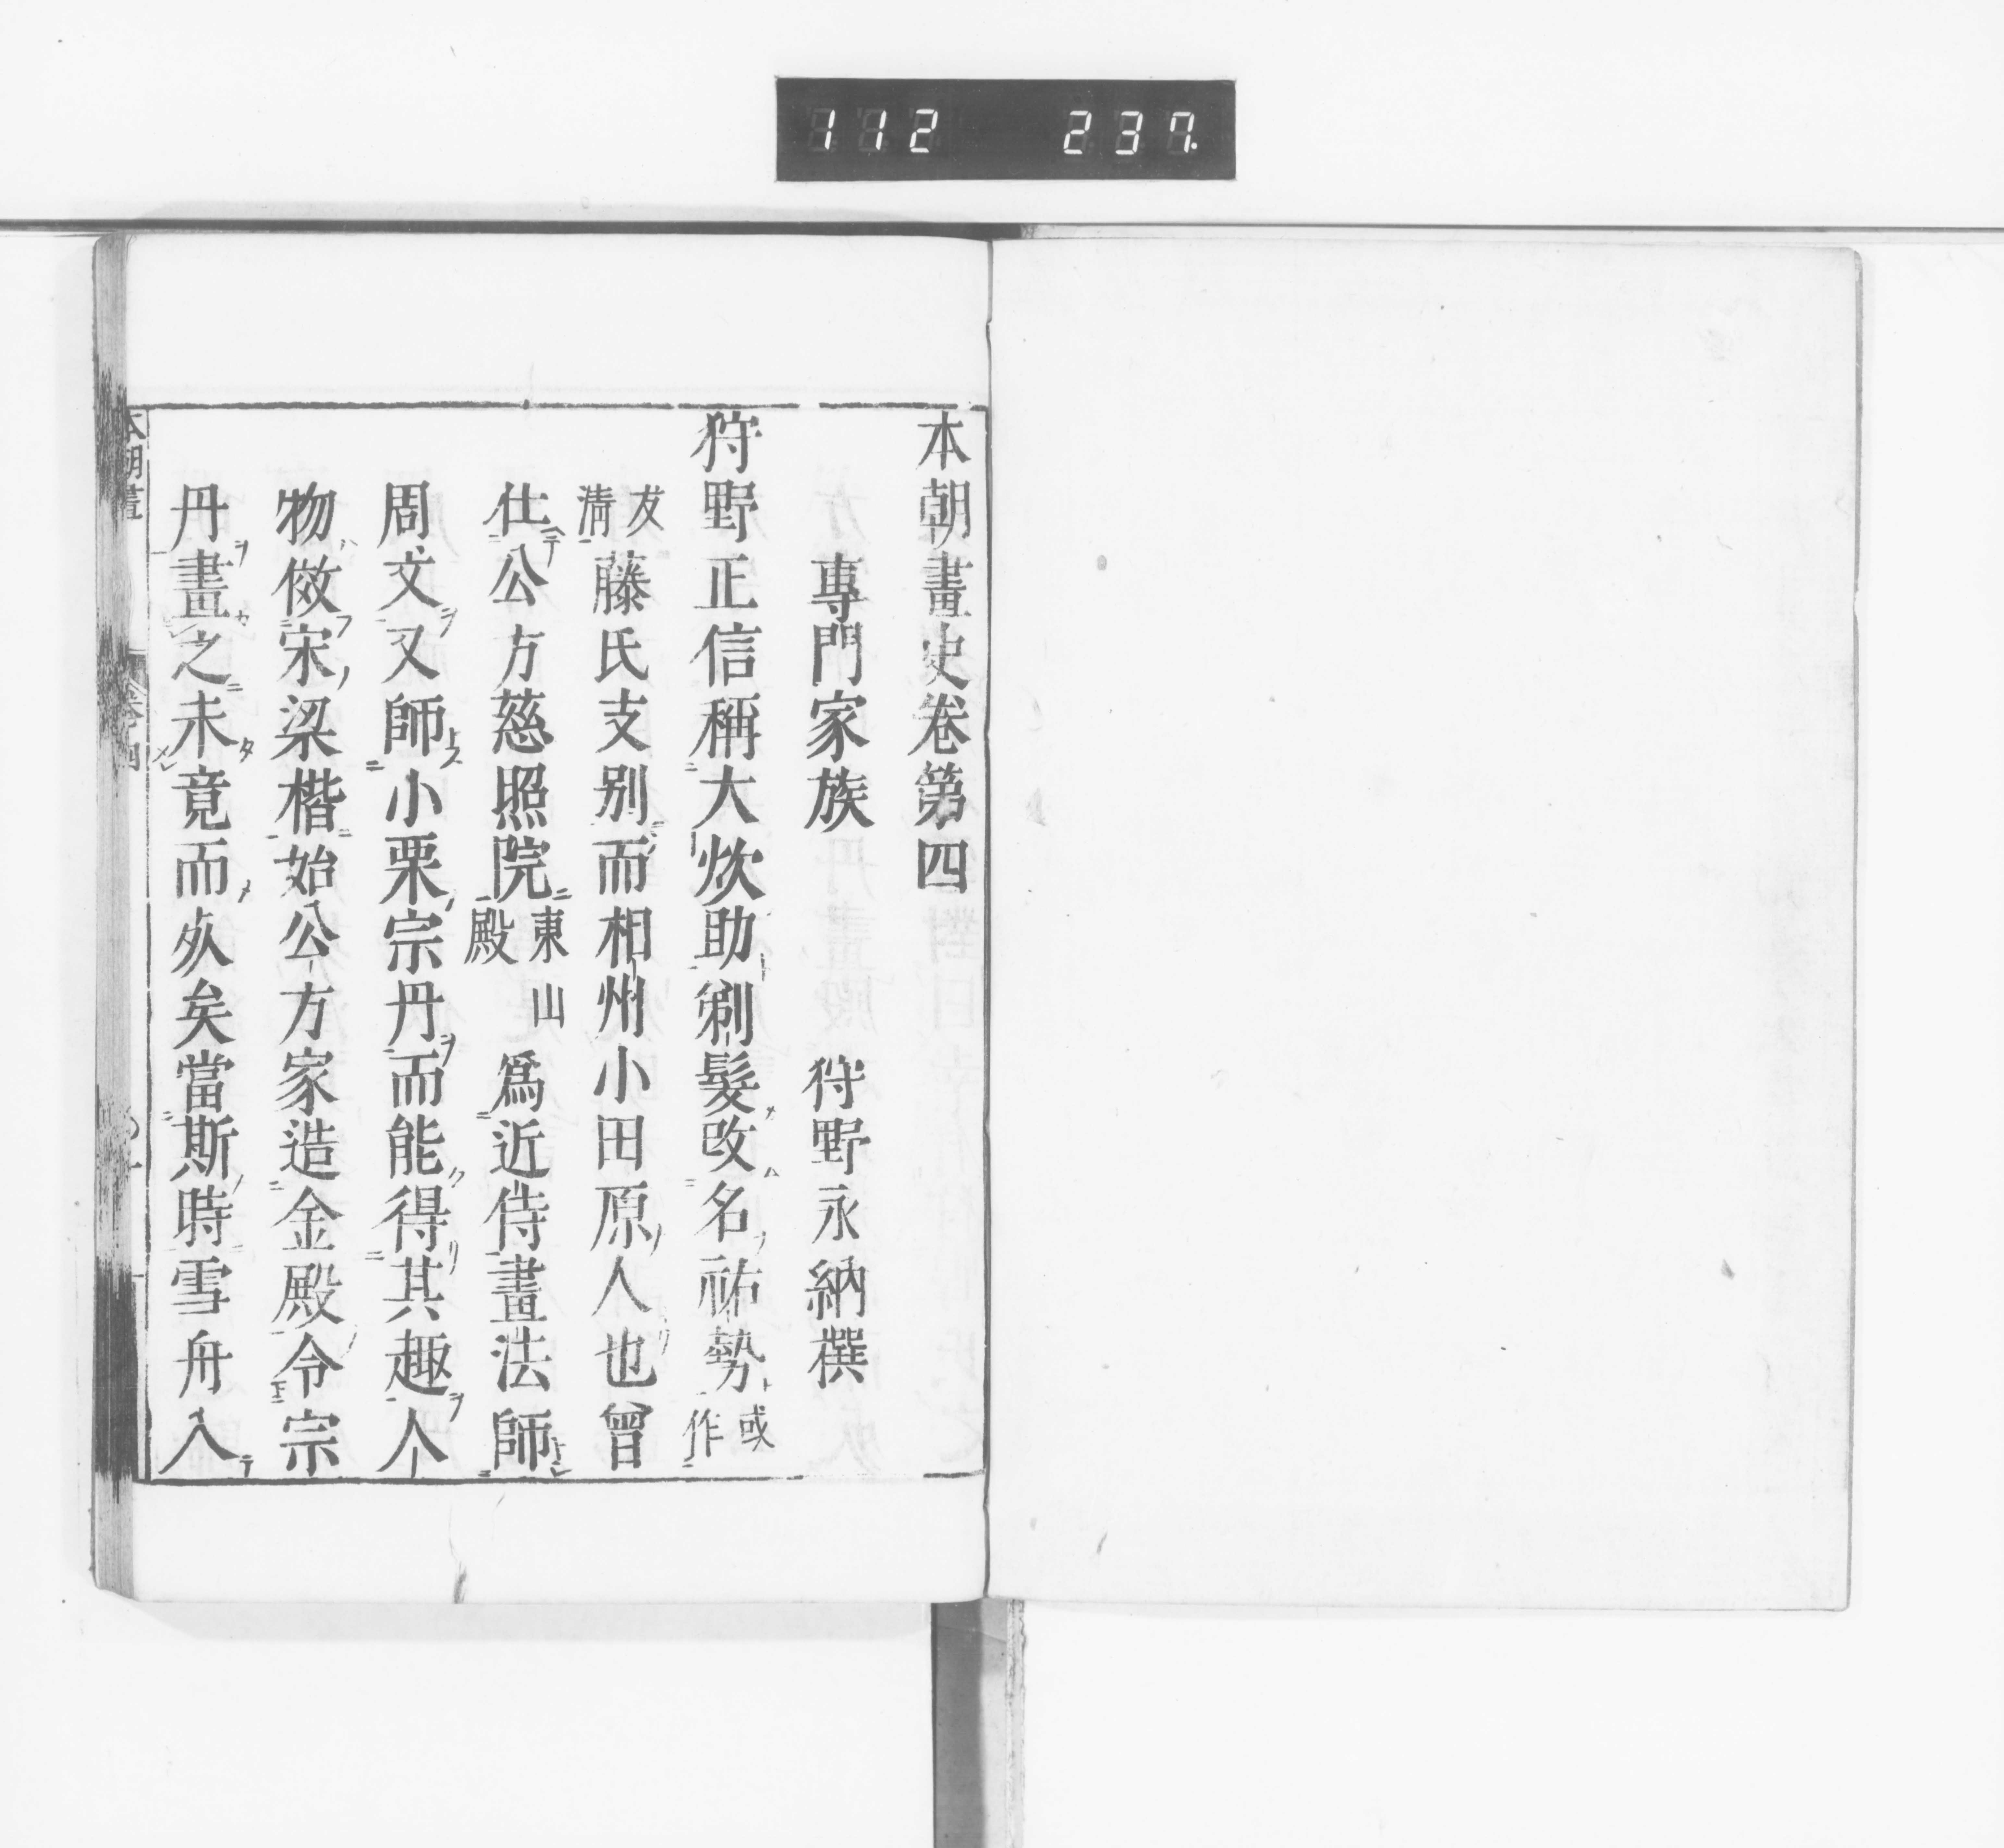 112 237.
本朝畫史卷第四
專門家族 狩野永納撰
狩野正信稱大炊助剃髮改名祐勢或作
友清藤氏支别而相州小田原人也曾
仕公方慈照院東山殿爲近侍畫法師
周文又師小栗宗丹而能得其趣人
物傚宋梁楷始公方家造金殿令宗
丹畫之未竟而死矣當斯時雪舟入